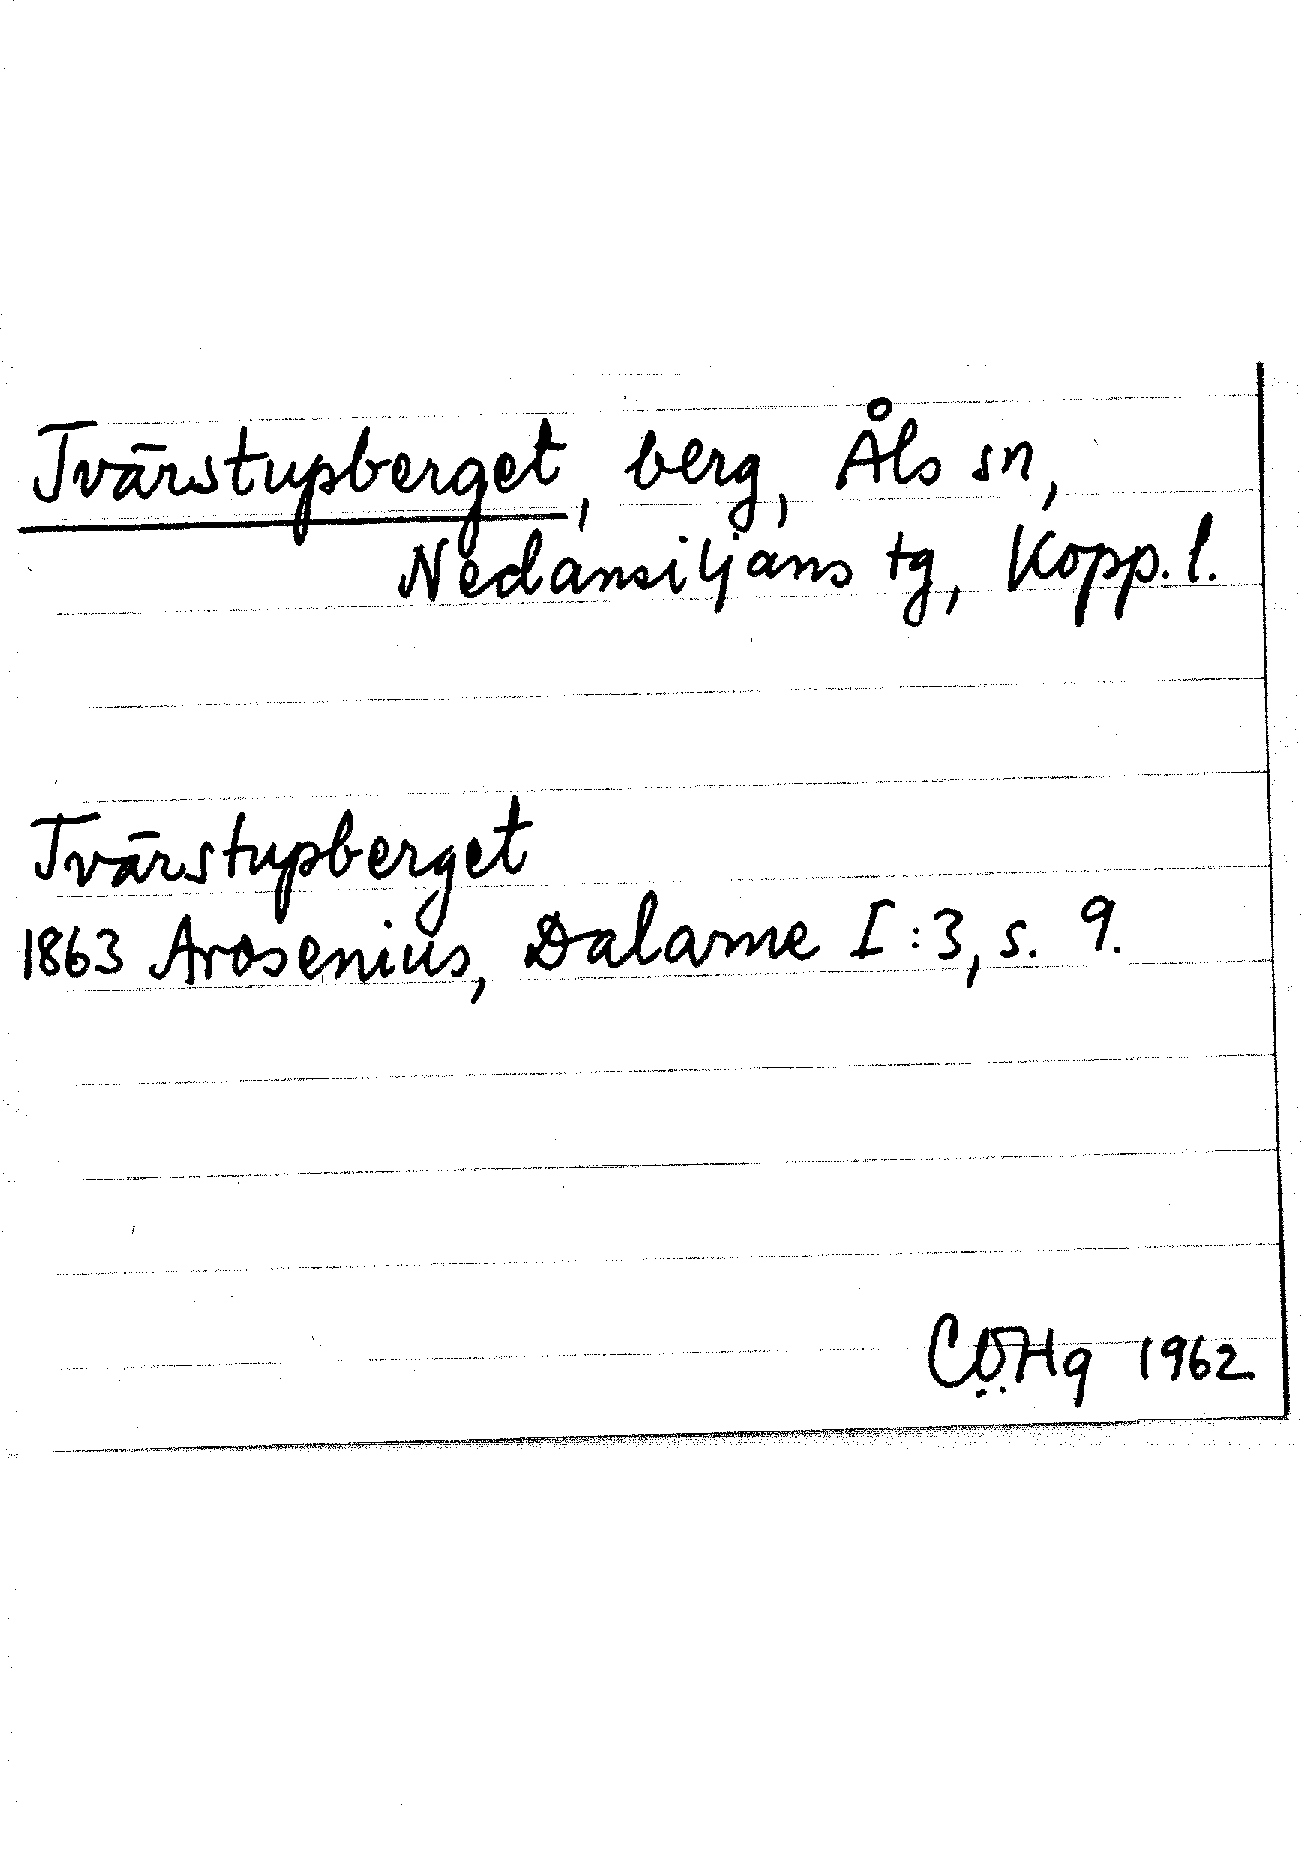 Tvärstupberget, berg, Åls sn,
Nedansiljans tg, Kopp. l.
Tvärstupberget
1863 Arosenius, Dalarne I:3, s. 9.
CÖHg 1962